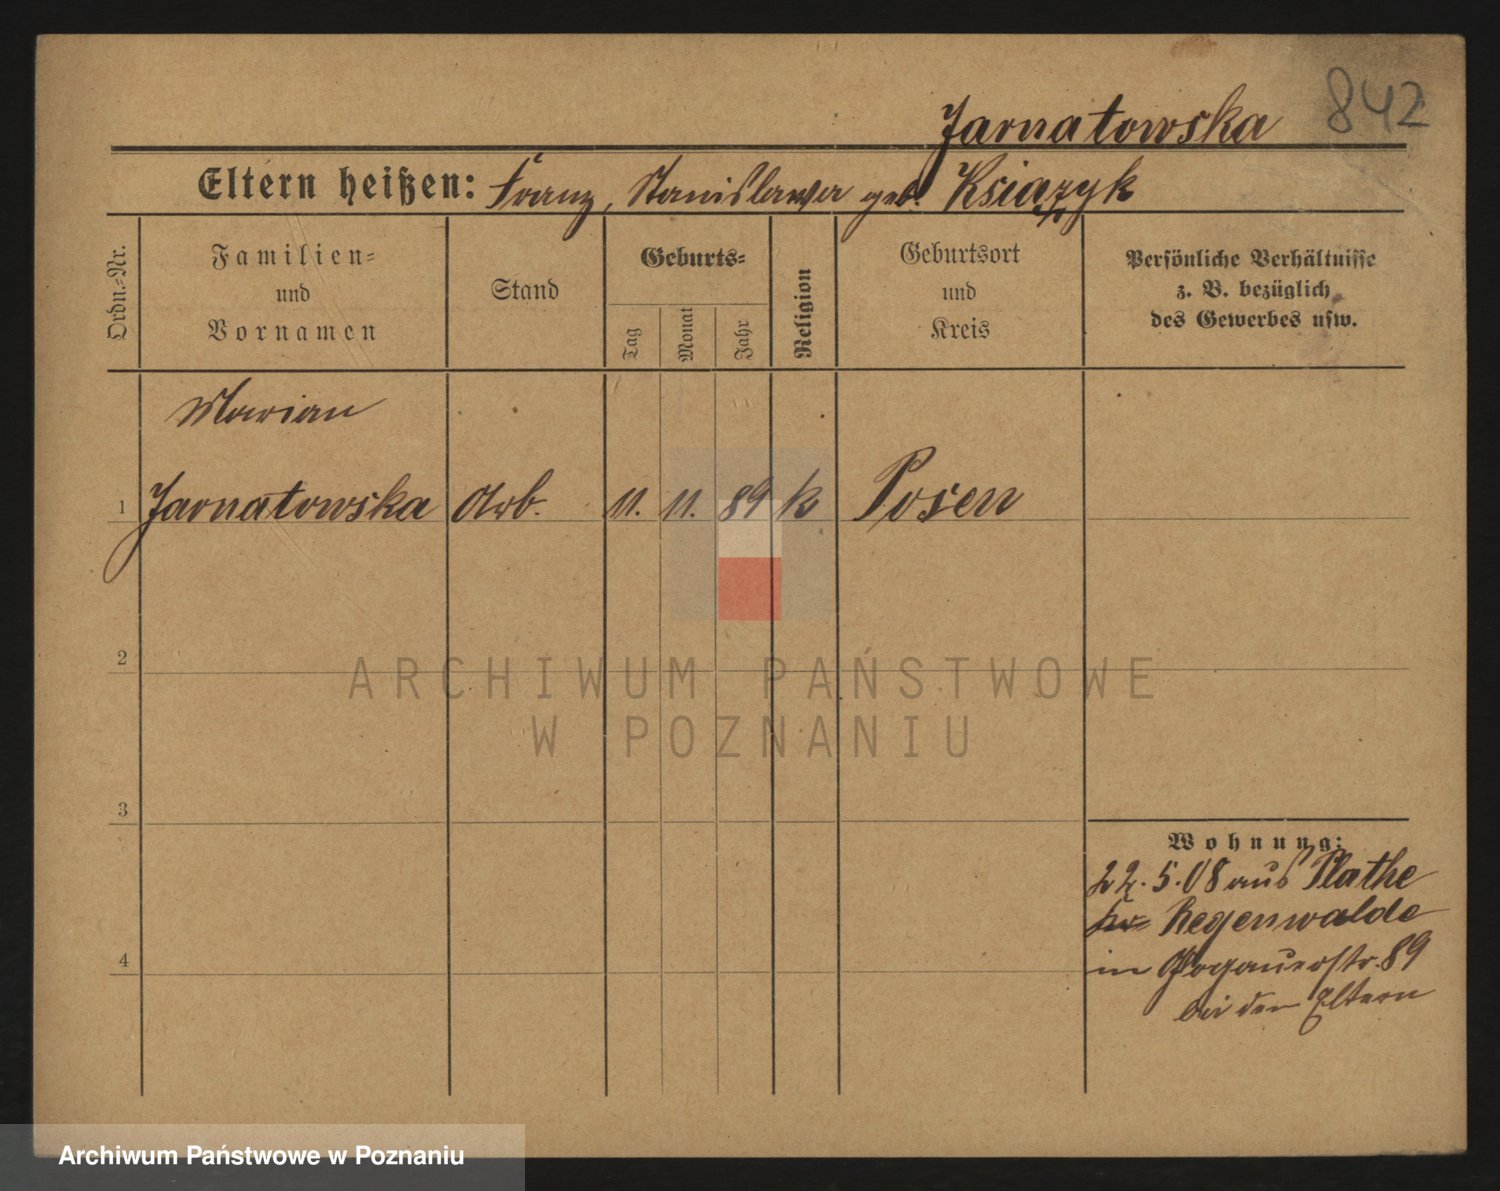 842
Jarnatowska
Eltern heißen: Franz, Stanislawa geb. Ksiazyk
Ordn.-Nr.
Familien-
und
Vornamen
Stand
Geburts-
Tag
Monat
Jahr
Religion
Geburtsort
und
Kreis
Persönliche Verhältnisse
z. B. bezüglich
des Gewerbes usw.
Marian
1 Jarnatowska Arb. 11. 11. 89 k Posen
2
3
4
Wohnung:
22.5.08 aus Plathe
Kr. Regenwalde
in Glogauerstr. 89
bei den Eltern
ARCHIWUM PAŃSTWOWE
W POZNANIU
Archiwum Państwowe w Poznaniu